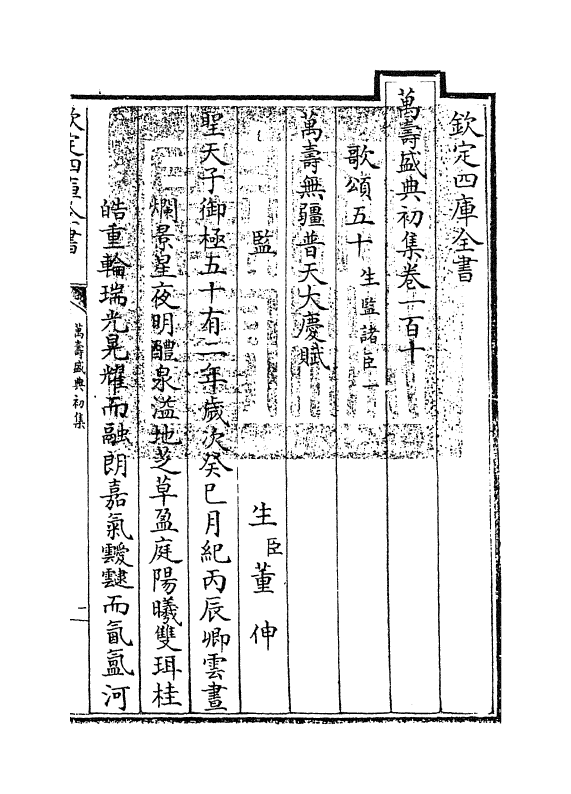 欽定四庫全書
萬壽盛典初集卷一百十
歌頌五十 生監諸臣一
萬壽無疆普天大慶賦
監 生臣董伸
聖天子御極五十有二年歲次癸巳月紀丙辰卿雲晝
爛景星夜明醴泉溢地芝草盈庭陽曦雙珥桂
皓重輪瑞光晃耀而融朗嘉氣靉靆而氤氳河
欽定四庫全書
萬壽盛典初集
一